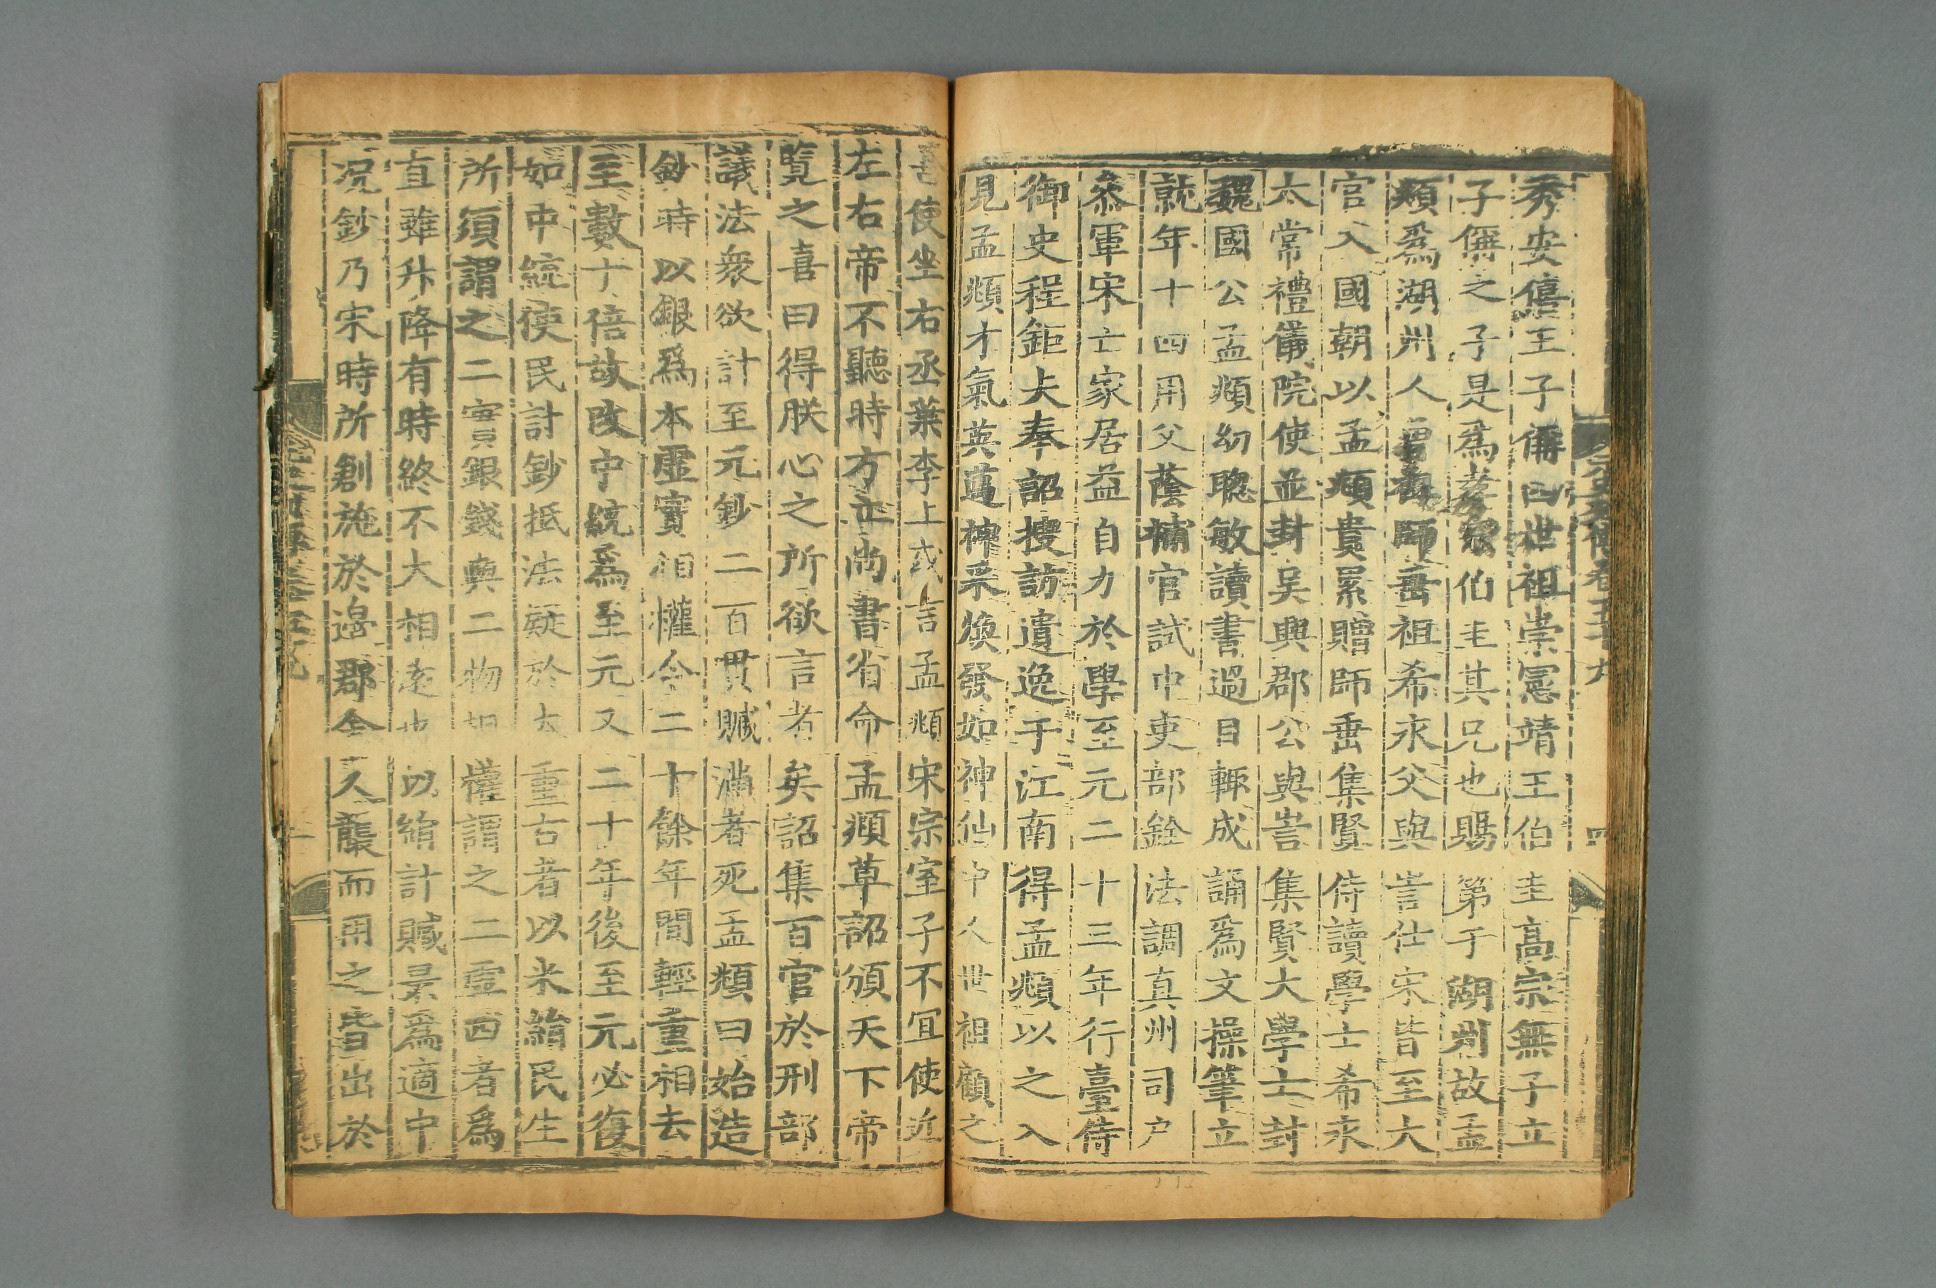 秀安僖王子偁四世祖崇憲靖王伯圭高宗無子立
子偁之子是爲孝宗伯圭其兄也賜第于湖州故孟
頫爲湖州人曾祖師垂祖希永父與訔仕宋皆至大
官入國朝以孟頫貴累贈師垂集賢侍讀學士希永
太常禮儀院使並封吳興郡公與訔集賢大學士封
魏國公孟頫幼聰敏讀書過目輒成誦爲文操筆立
就年十四用父蔭補官試中吏部銓法調真州司户
叅軍宋亡家居益自力於學至元二十三年行臺侍
御史程鉅夫奉詔搜訪遺逸于江南得孟頫以之入
見孟頫才氣英邁神采煥發如神仙中人世祖顧之
喜使坐右丞葉李上或言孟頫宋宗室子不宜使近
左右帝不聽時方立尚書省命孟頫草詔頒天下帝
覽之喜曰得朕心之所欲言者矣詔集百官於刑部
議法衆欲計至元鈔二百貫贓滿者死孟頫曰始造
鈔時以銀爲本虛實相權今二十餘年間輕重相去
至數十倍故改中統爲至元又二十年後至元必復
如中統使民計鈔抵法疑於太重古者以米絹民生
所須謂之二實銀錢與二物相權謂之二虛四者爲
直雖升降有時終不大相遠也以絹計贓㝡爲適中
况鈔乃宋時所創施於邊郡金人襲而用之皆出於